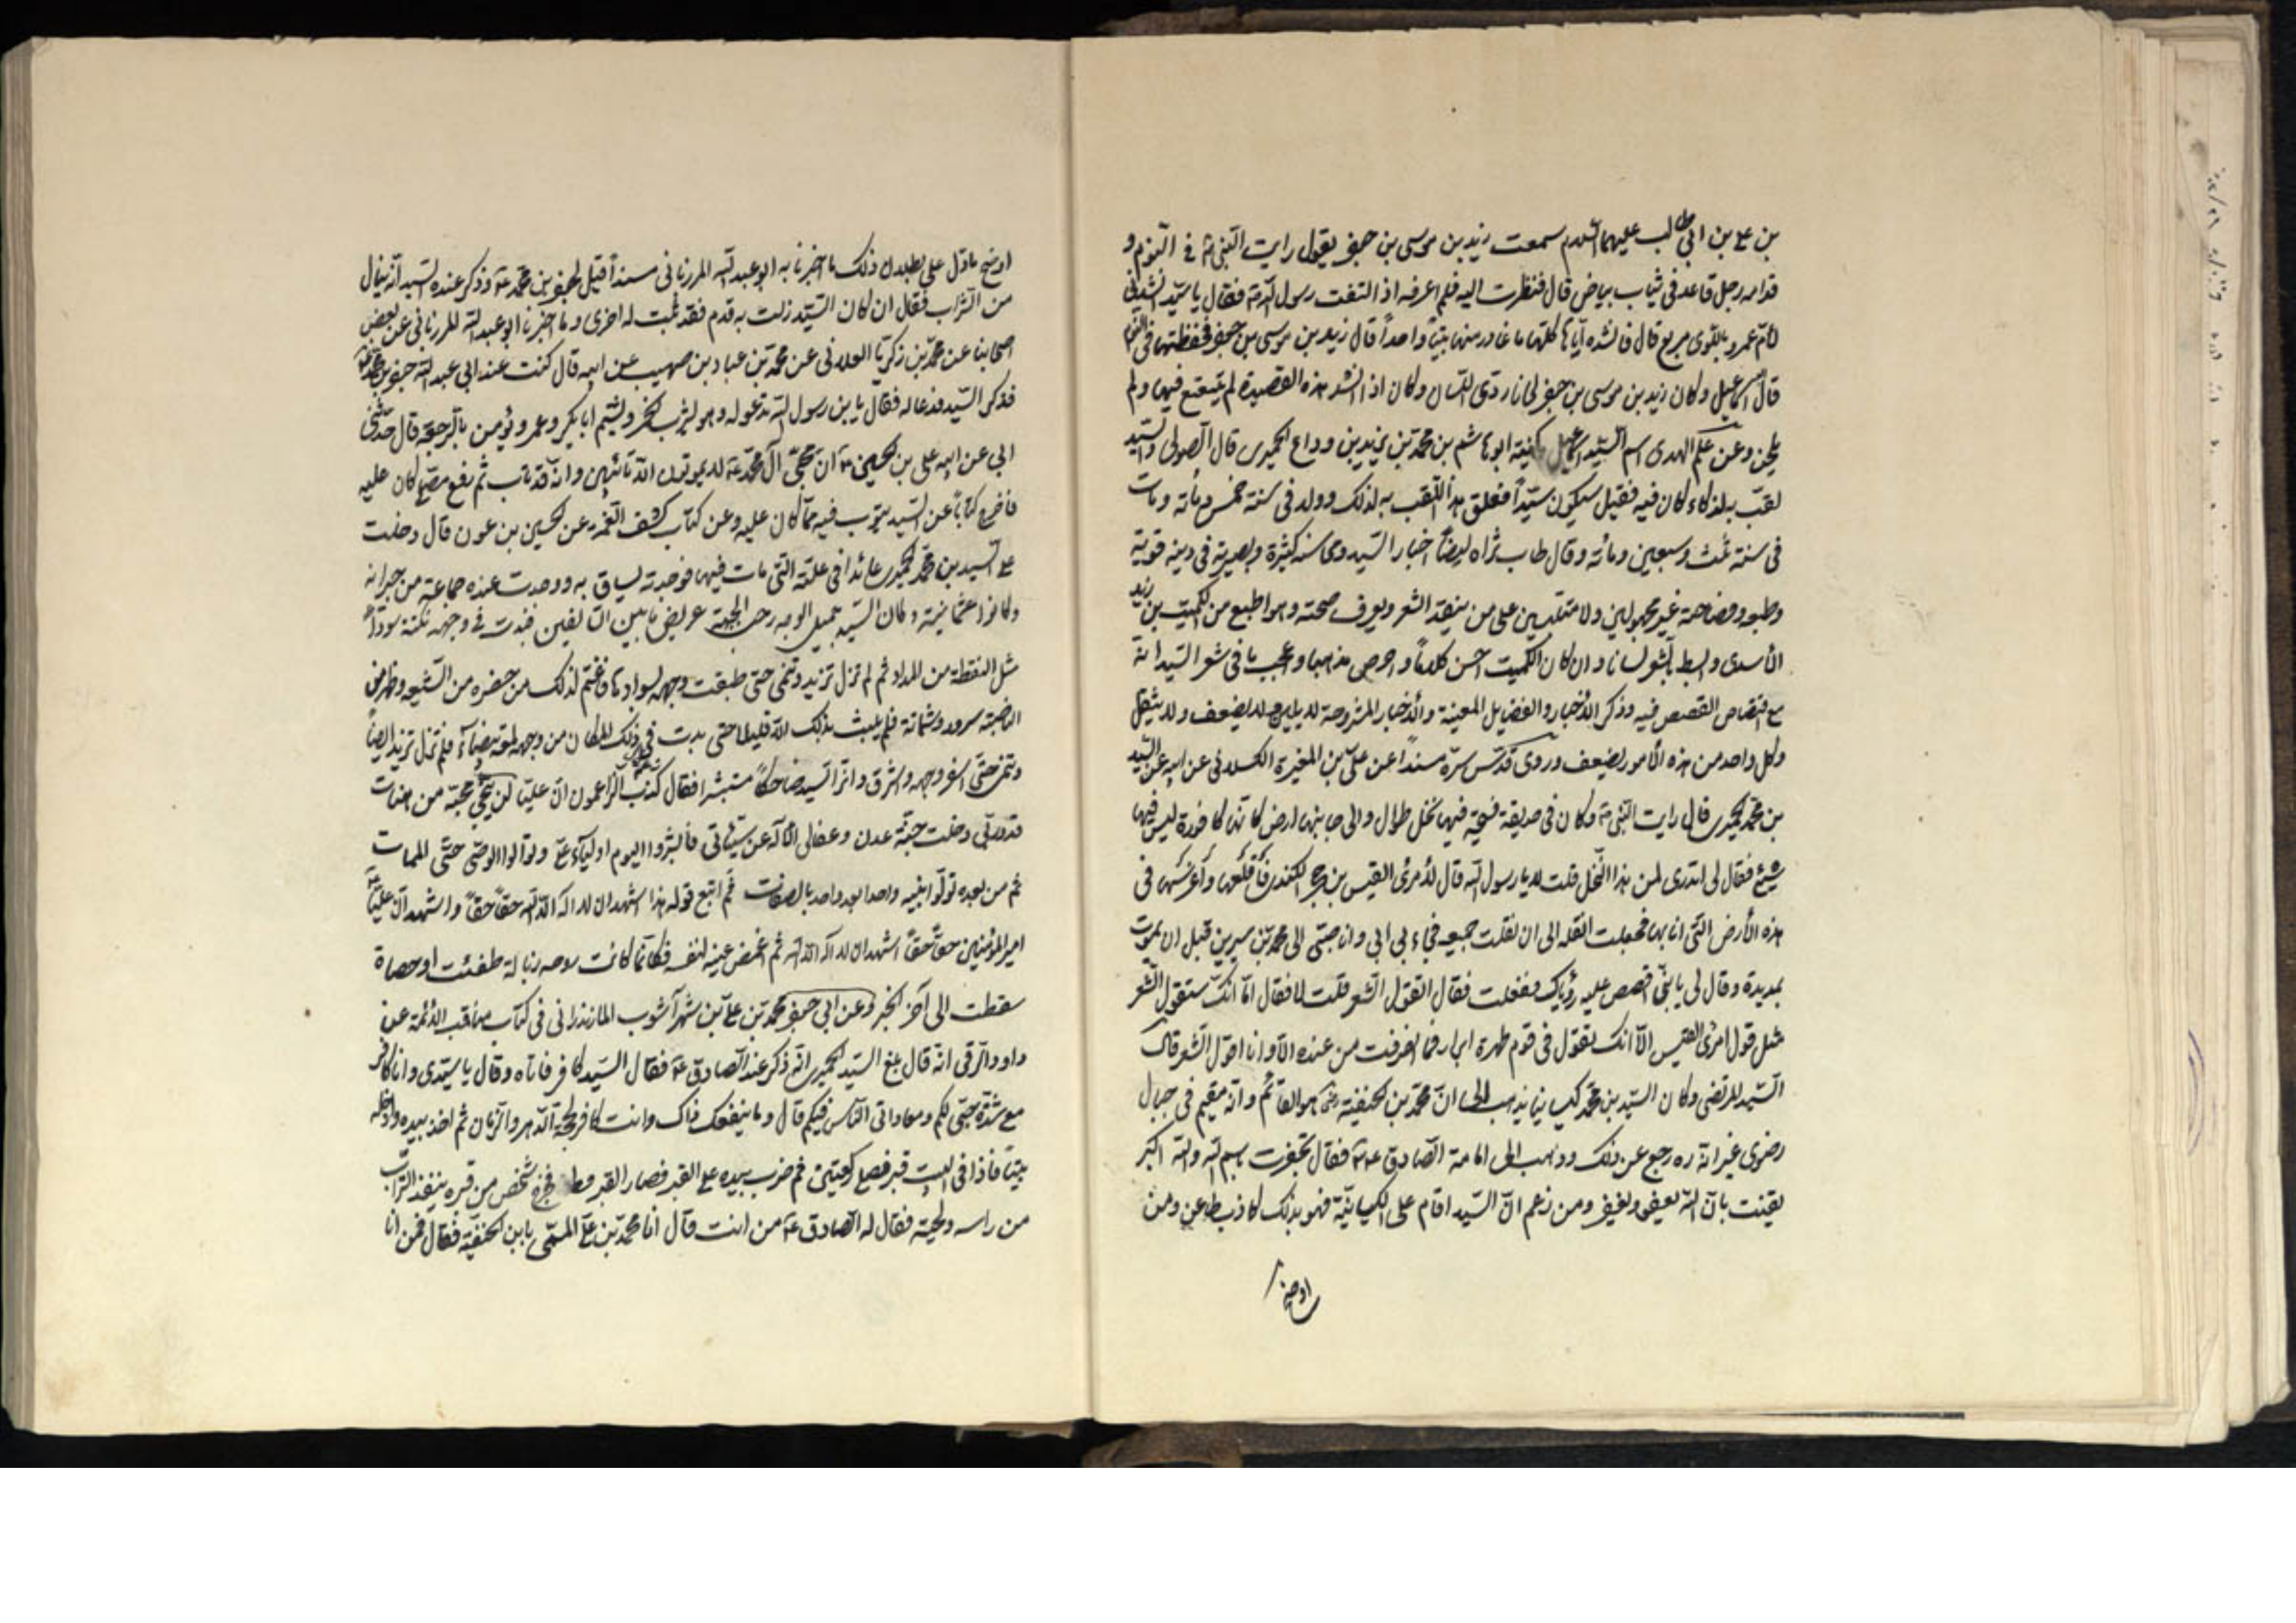 بن علی بن ابی طالب علیهما السلام سمعت زید بن موسی بن جعفر یقول رایت النبی ص فی النوم و
قدامه رجل قاعد فی ثیاب بیاض قال فنظرت الیه فلم اعرفه اذ التفت رسول الله ص فقال یا سید انشدنی
لام عمرو باللوی مربع قال فانشده ایاها کلها ما غادر منها بیتا واحدا قال زید بن موسی بن جعفر فحفظتها فی النوم
قال اسماعیل وکان زید بن موسی بن جعفر لحانا ردی اللسان وکان اذا انشد هذه القصیدة لم یتعتع فیها ولم
یلحن وعن علم الهدی اسم السید اسماعیل وکنیته ابو هاشم بن محمد بن یزید بن وداع الحمیری قال الصولی والسید
لقب به لذکاء کان فیه فقیل سیکون سیدا فعلق هذا اللقب به لذلک وولد فی سنة خمس ومائة ومات
فی سنة ثلث وسبعین ومائة وقال طاب ثراه ایضا اخبار السید ومحاسنه کثیرة وبصیرته فی دینه قویة
وطبعه وفصاحته غیر مجهولین ولا متلبسین علی من ینقد الشعر ویعرف صحته وهو اطبع من الکمیت بن زید
الأسدی وابسط بالشعر لسانا وان کان الکمیت احسن کلاما واحوص مذهبا واعجب ما فی شعر السید انه
مع اقتصاص القصص فیه وذکر الأخبار والفضایل المعینة والأخبار المشروحة لا یلین ولا یضعف ولا یثقل
وکل واحد من هذه الأمور یضعف وروی قدس سره مسندا عن علی بن المغیرة الکلانی عن ابیه عن السید
بن محمد الحمیری قال رایت النبی ص وکان فی حدیقة فسیحة فیها نخل طوال والی جانبها ارض کانها کافورة لیس فیها
شیئ فقال لی اتدری لمن هذا النخل قلت لا یا رسول الله قال لأمرئ القیس بن حجر الکندی فاقلعها واغرسها فی
هذه الأرض التی انا بها فجعلت انقله الی ان نقلت جمیعه فجاء بی ابی وانا صبی الی محمد بن سیرین قبل ان یموت
بمدیدة وقال لی یا بنی اقصص علیه رؤیاک ففعلت فقال اتقول الشعر قلت لا فقال اما انک ستقول الشعر
مثل قول امرئ القیس الا انک تقول فی قوم طهرة ابرار فما انصرفت من عنده الا وانا اقول الشعر قال
السید المرتضی وکان السید بن محمد کیسانیا یذهب الی ان محمد بن الحنفیة رض هو القائم وانه مقیم فی جبال
رضوی غیر انه ره رجع عن ذلک وذهب الی امامة الصادق ع فقال تجعفرت باسم الله والله اکبر
یقنت بان الله یعفو ویغفر ومن زعم ان السید اقام علی الکیسانیة فهو بذلک کاذب طاعن ومن
اوضح
اوضح ما دل علی بطلان ذلک ما اخبرنا به ابو عبد الله المرزبانی مسندا قیل لجعفر بن محمد ع وذکر عنده السید انه ینال
من الشراب فقال ان کان السید زلت به قدم فقد ثبت له اخری وما اخبرنا ابو عبد الله المرزبانی عن بعض
اصحابنا عن محمد بن زکریا العلانی عن محمد بن عباد بن صهیب عن ابیه قال کنت عند ابی عبد الله جعفر بن محمد ع
فذکر السید فدعا له فقال یا بن رسول الله تدعو له وهو یشرب الخمر ویشتم ابا بکر وعمر ویؤمن بالرجعة قال حدثنی
ابی عن ابیه علی بن الحسین ع ان محبی آل محمد ع لا یموتون الا تائبین وانه قد تاب ثم رفع مصلی کان علیه
فاخرج کتابا عن السید یتوب فیه مما کان علیه وعن کتاب کشف الغمه عن الحسین بن عون قال دخلت
علی السید بن محمد الحمیری عائدا فی علته التی مات فیها فوجدته یساق به ووجدت عنده جماعة من جیرانه
وکانوا عثمانیة وکان السید جمیل الوجه رحب الجبهة عریض ما بین السالفین فبدت فی وجهه نکتة سوداء
مثل النقطة من المداد ثم لم تزل تزید وتنمی حتی طبقت وجهه بسوادها فاغتم لذلک من حضره من الشیعه وظهر من
الناصبة سرور وشماتة فلم یلبث بذلک الا قلیلا حتی بدت فی ذلک المکان من وجهه لمعة بیضاء فلم تزل تزید ایضا
وتنمی حتی اسفر وجهه واشرق وافتر السید ضاحکا مستبشرا فقال کذب الزاعمون ان علیا لن ینجی محبه من هنات
قد وربی دخلت جنة عدن وعفا لی الاله عن سیئاتی فابشروا الیوم اولیاء علی وتوالوا الوصی حتی الممات
ثم من بعده تولوا بنیه واحدا بعد واحد بالصفات ثم اتبع قوله هذا اشهد ان لا اله الا الله حقا حقا واشهد ان علیا
امیر المؤمنین حقا حقا اشهد ان لا اله الا الله ثم اغمض عینه لنفسه فکانما کانت روحه زبالة طفئت او حصاة
سقطت الی آخر الخبر وعن ابی جعفر محمد بن علی بن شهر آشوب المازندرانی فی کتاب مناقب الأئمة عن
داود الرقی انه قال بلغ السید الحمیری انه ذکر عند الصادق ع فقال السید کافر فاتاه وقال یا سیدی وانا کافر
مع شدة حبی لکم ومعاداتی الناس فیکم قال وما ینفعک ذاک وانت کافر بحجة الدهر والزمان ثم اخذ بیده وادخله
بیتا فاذا فی البیت قبر فصلی رکعتین ثم ضرب بیده علی القبر فصار القبر قطعا فخرج شخص من قبره ینفض التراب
من راسه ولحیته فقال له الصادق ع من انت قال انا محمد بن علی المسمی بابن الحنفیة فقال فمن انا